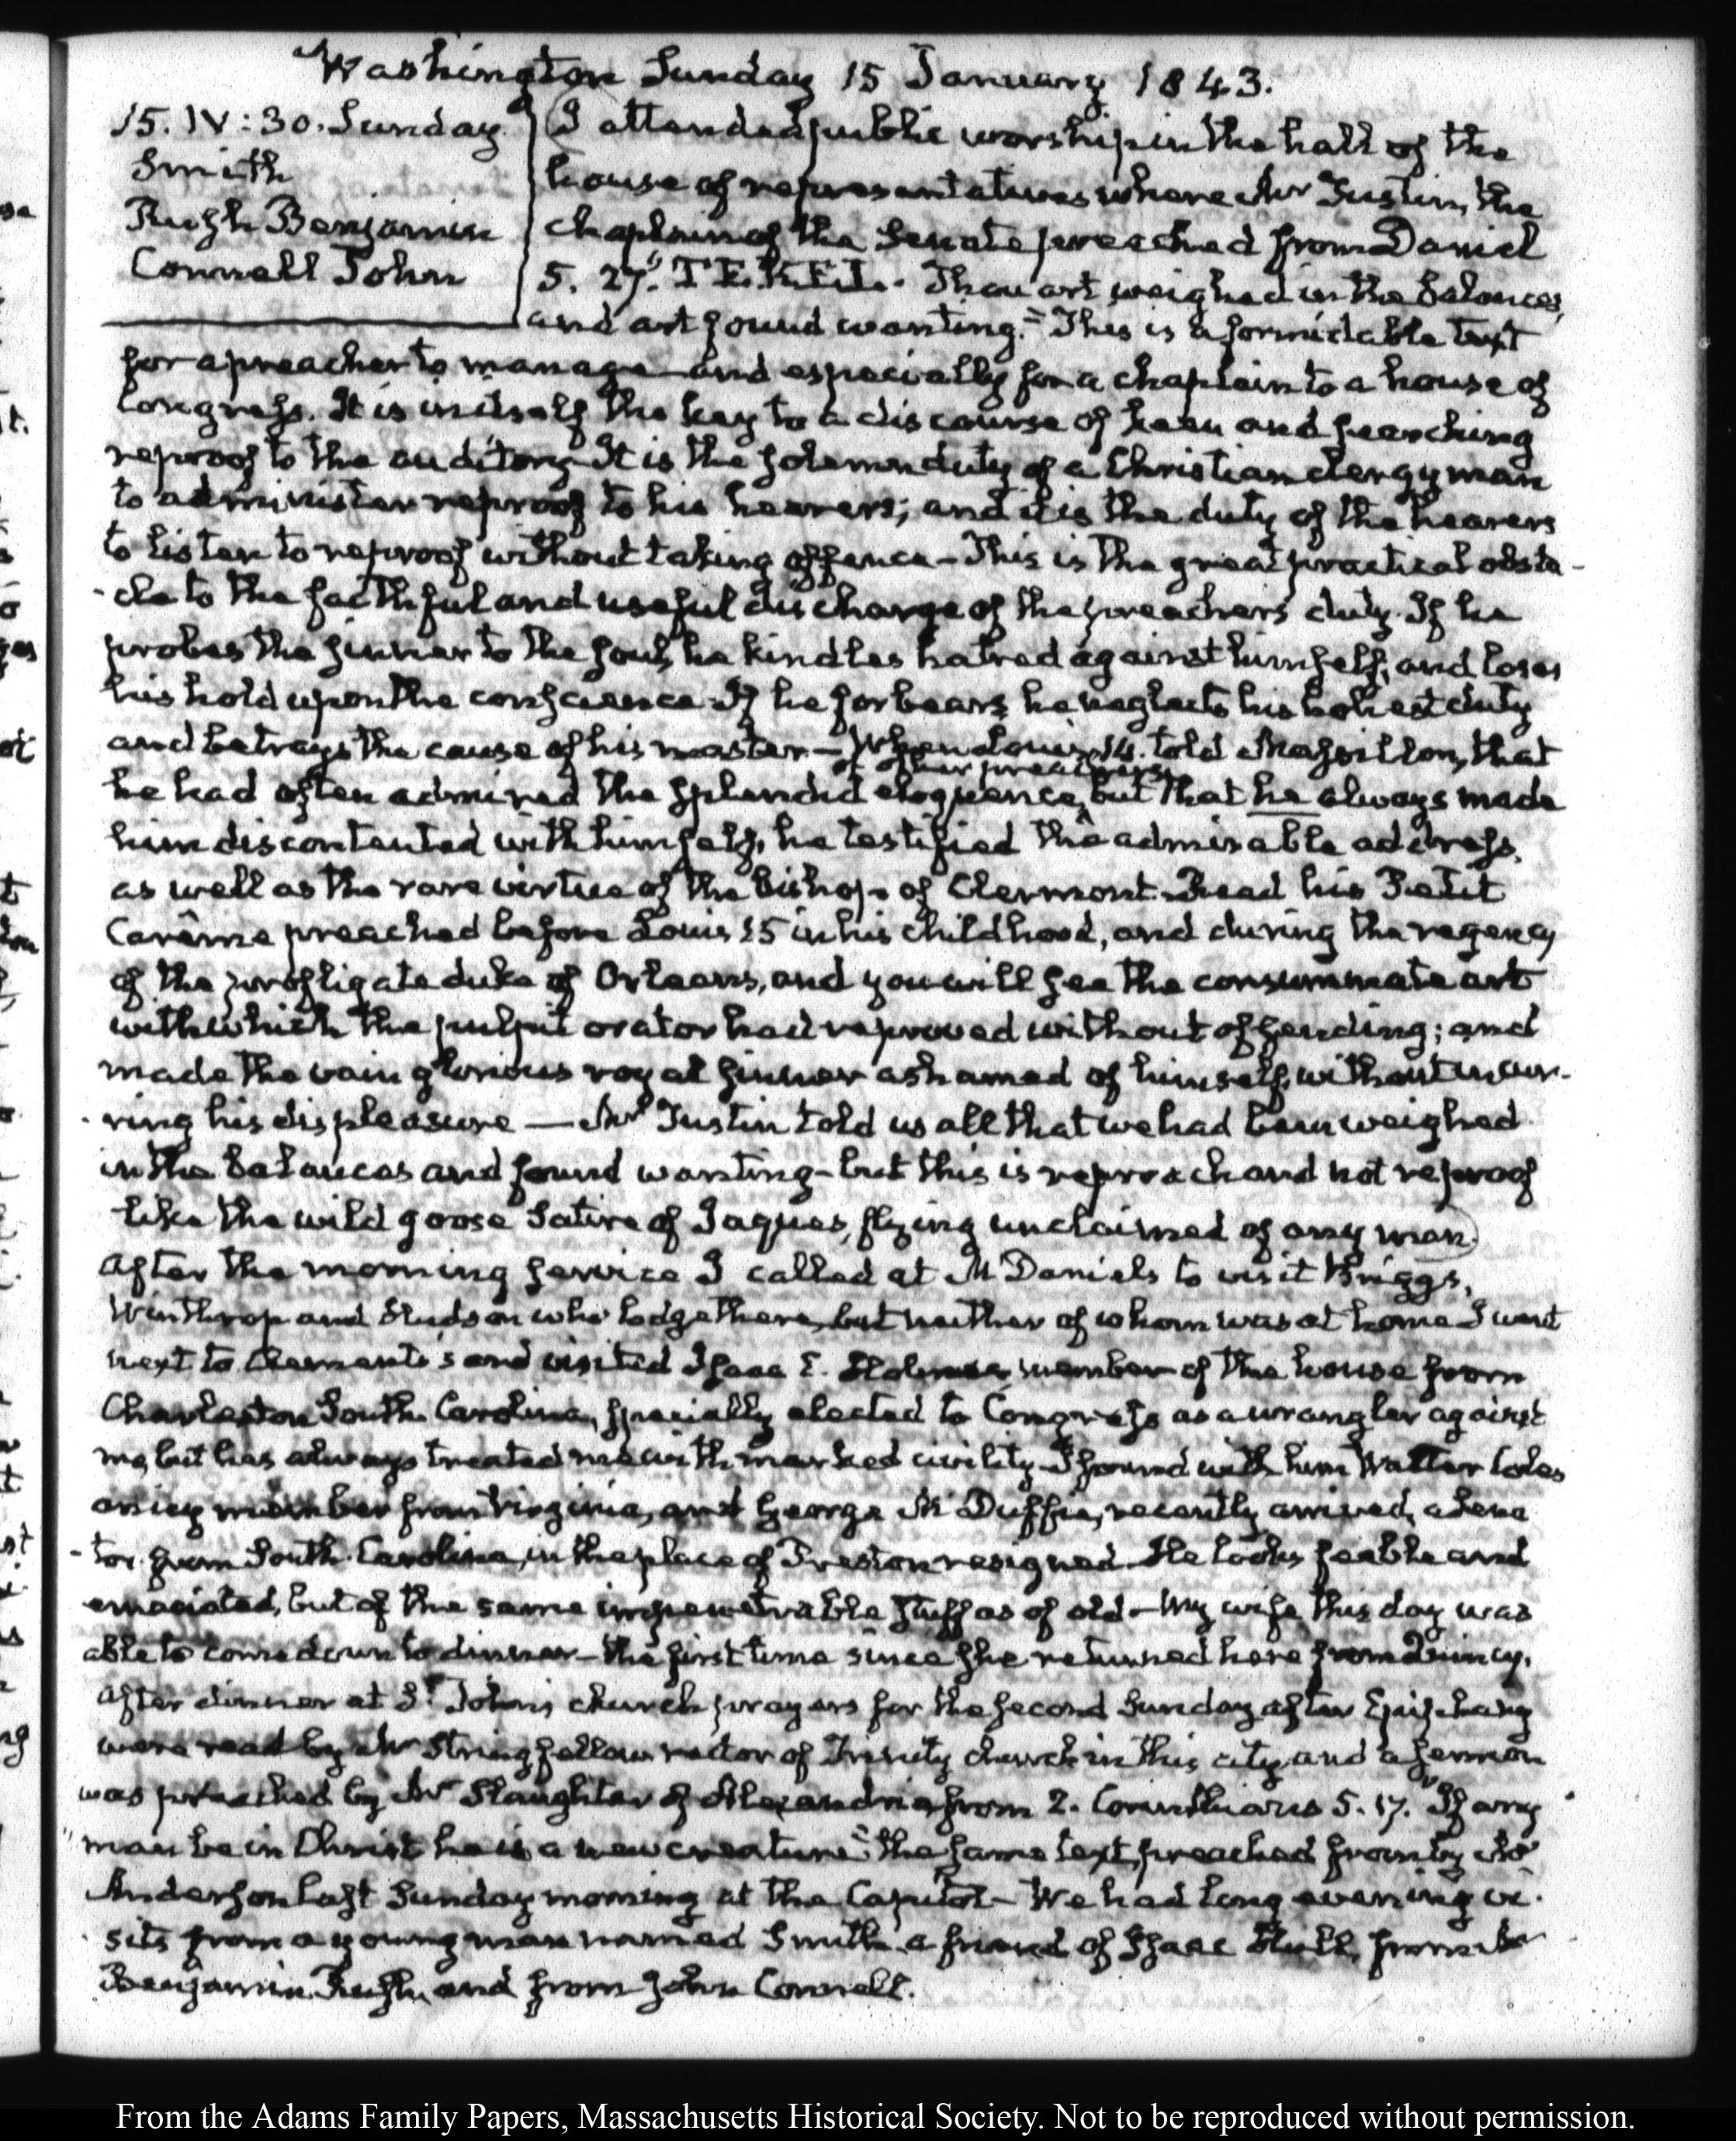 Washington Sunday 15 January 1843.
15. IV:30. Sunday
Smith
Rush Benjamin
Connell John
I attended public worship in the hall of the
house of representatives where Mr Tustin, the
chaplain of the Senate preached from Daniel
5. 27. "TEKEL. Thou art weighed in the balances,
and art found wanting." This is a formidable text
for a preacher to manage and especially for a chaplain to a house of
Congress. It is in itself the key to a discourse of keen and searching
reproof to the auditory. It is the solemn duty of a Christian clergyman
to administer reproof to his hearers; and it is the duty of the hearers
to listen to reproof without taking offence - This is the great practical obsta-
-cle to the faithful and useful discharge of the preacher's duty. If he
probes the sinner to the soul, he kindles hatred against himself, and loses
his hold upon the conscience. If he forbears, he neglects his holiest duty
and betrays the cause of his master - When Louis 14. told Massillon, that
of other preachers,
he had often admired the splendid eloquence, but that he always made
him discontented with himself, he testified the admirable address,
as well as the rare virtue of the bishop of Clermont. Read his Petit
Carême preached before Louis 15 in his childhood, and during the regency
of the profligate duke of Orleans, and you will see the consummate art
with which the pulpit orator had reproved without offending; and
made the vain glorious royal sinner ashamed of himself, without incur-
-ring his displeasure — Mr Tustin told us all that we had been weighed
in the balances and found wanting - but this is reproach and not reproof
like the wild goose Satire of Jaques, flying unclaimed of any man.
After the morning service I called at McDaniel's to visit Briggs,
Winthrop and Hudson who lodge there, but neither of whom was at home. I went
next to Clements's and visited Isaac E. Holmes, member of the house from
Charleston South Carolina, specially elected to Congress as a wrangler against
me, but has always treated me with marked civility. I found with him Walter Coles
a member from Virginia, and George McDuffie, recently arrived, a Sena
-tor from South Carolina, in the place of Preston resigned. He looks feeble and
emaciated, but of the same impenetrable stuff as of old - My wife this day was
able to come down to dinner - the first time since she returned here from Quincy.
After dinner at St. John's church prayers for the second Sunday after Epiphany
were read by Mr Stringfellow rector of Trinity church in this city and a sermon
was preached by Mr Slaughter of Alexandria from 2. Corinthians 5. 17. "If any
"man be in Christ he is a new creature" the same text preached from by Mr
Anderson last Sunday morning at the Capitol - We had long evening vi-
-sits from a young man named Smith, a friend of Isaac Hull, from
Benjamin Rush, and from John Connell.
From the Adams Family Papers, Massachusetts Historical Society. Not to be reproduced without permission.